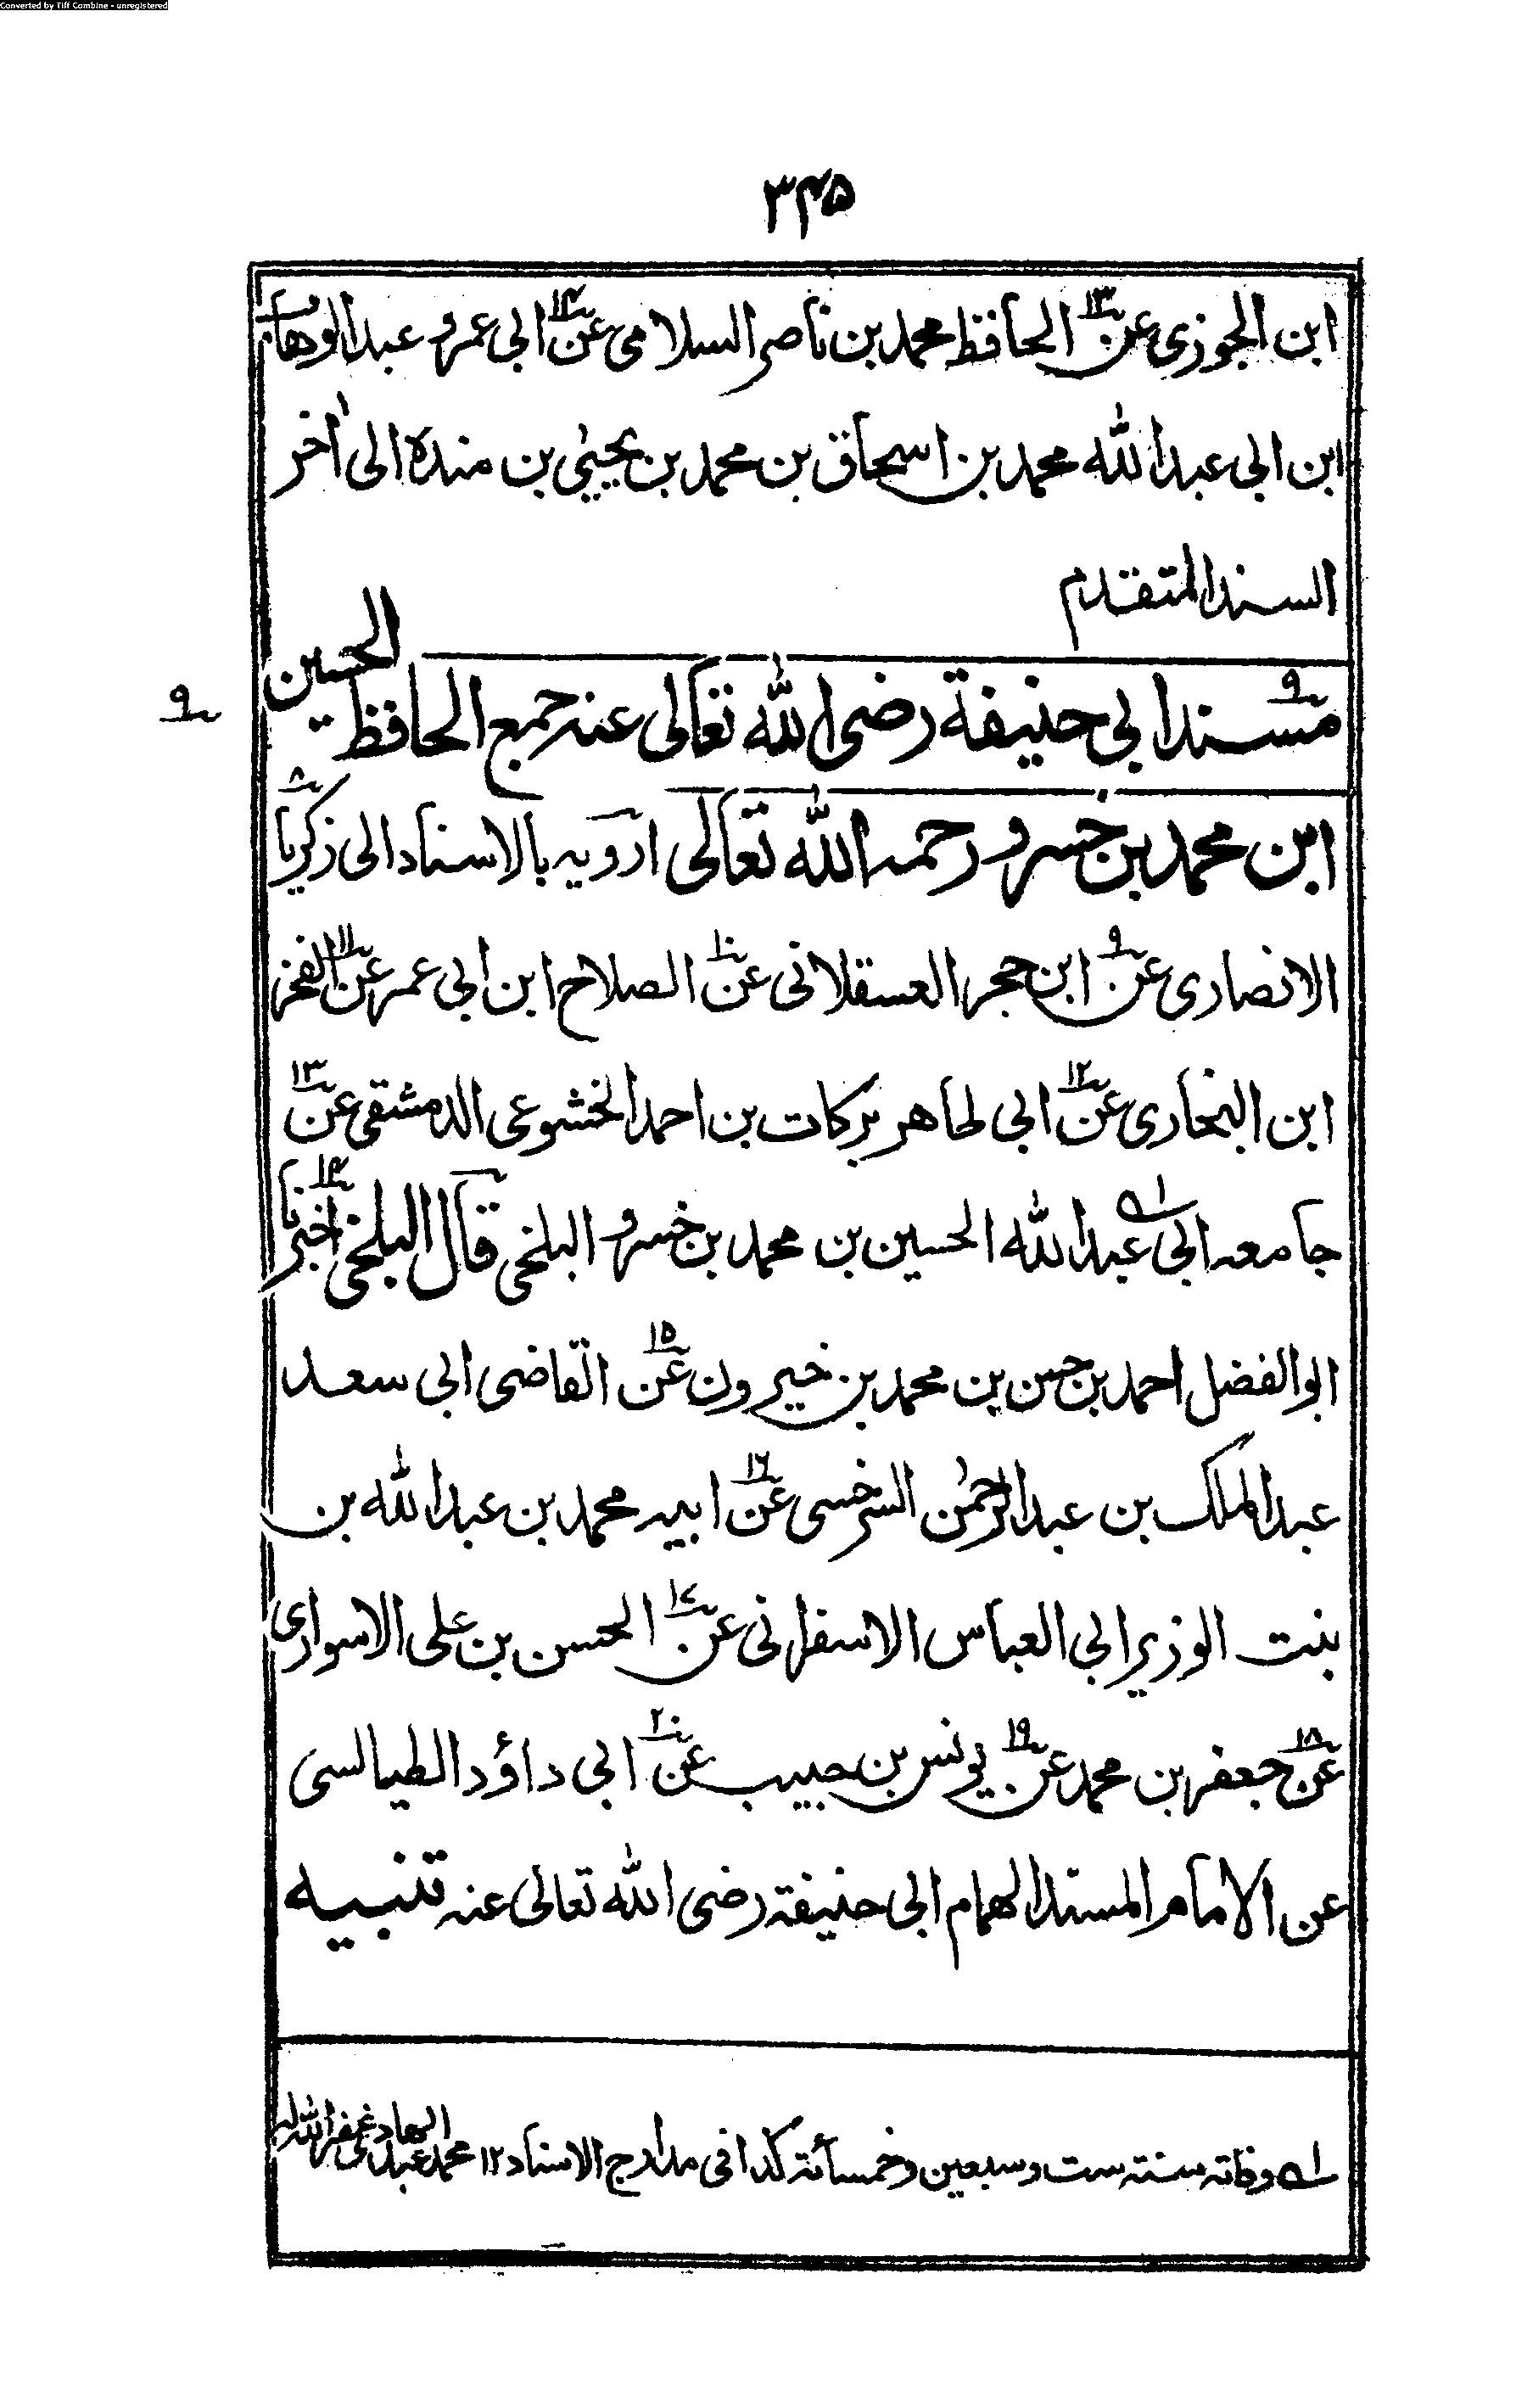 Converted by Tiff Combine - unregistered
۳۴۵
ابن الجوزی عن۱۳ الحافظ محمد بن ناصر السلامی عن۱۴ ابی عمرو عبد الوهاب
ابن ابی عبد الله محمد بن اسحاق بن محمد بن یحیی بن منده الی اٰخر
السند المتقدم
۹ مسند ابی حنیفة رضی الله تعالی عنه جمع الحافظ الحسین ۹
ابن محمد بن خسرو رحمه الله تعالی ارویه بالاسناد الی زکریا۸
الانصاری عن۹ ابن حجر العسقلانی عن۱۰ الصلاح ابن ابی عمر عن۱۱ الفخر
ابن البخاری عن۱۲ ابی طاهر برکات بن احمد الخشوعی الدمشقی عن۱۳
جامعه ابی عبد الله۱ الحسین بن محمد بن خسرو البلخی قال البلخی اخبرنا۱۴
ابو الفضل احمد بن حسن بن محمد بن خیرون عن۱۵ القاضی ابی سعد
عبد الملک بن عبد الرحمٰن السرخسی عن۱۶ ابیه محمد بن عبد الله بن
بنت الوزیر ابی العباس الاسفرانی عن۱۷ الحسن بن علی الاسواری
عن۱۸ جعفر بن محمد عن۱۹ یونس بن حبیب عن۲۰ ابی داؤد الطیالسی
عن الامام المسند الهمام ابی حنیفة رضی الله تعالی عنه تنبیه
۱ وفاته سنته ست وسبعین وخمسأته کذا فی مدارج الاسناد ۱۲ محمد عبد الهادی غفر الله له